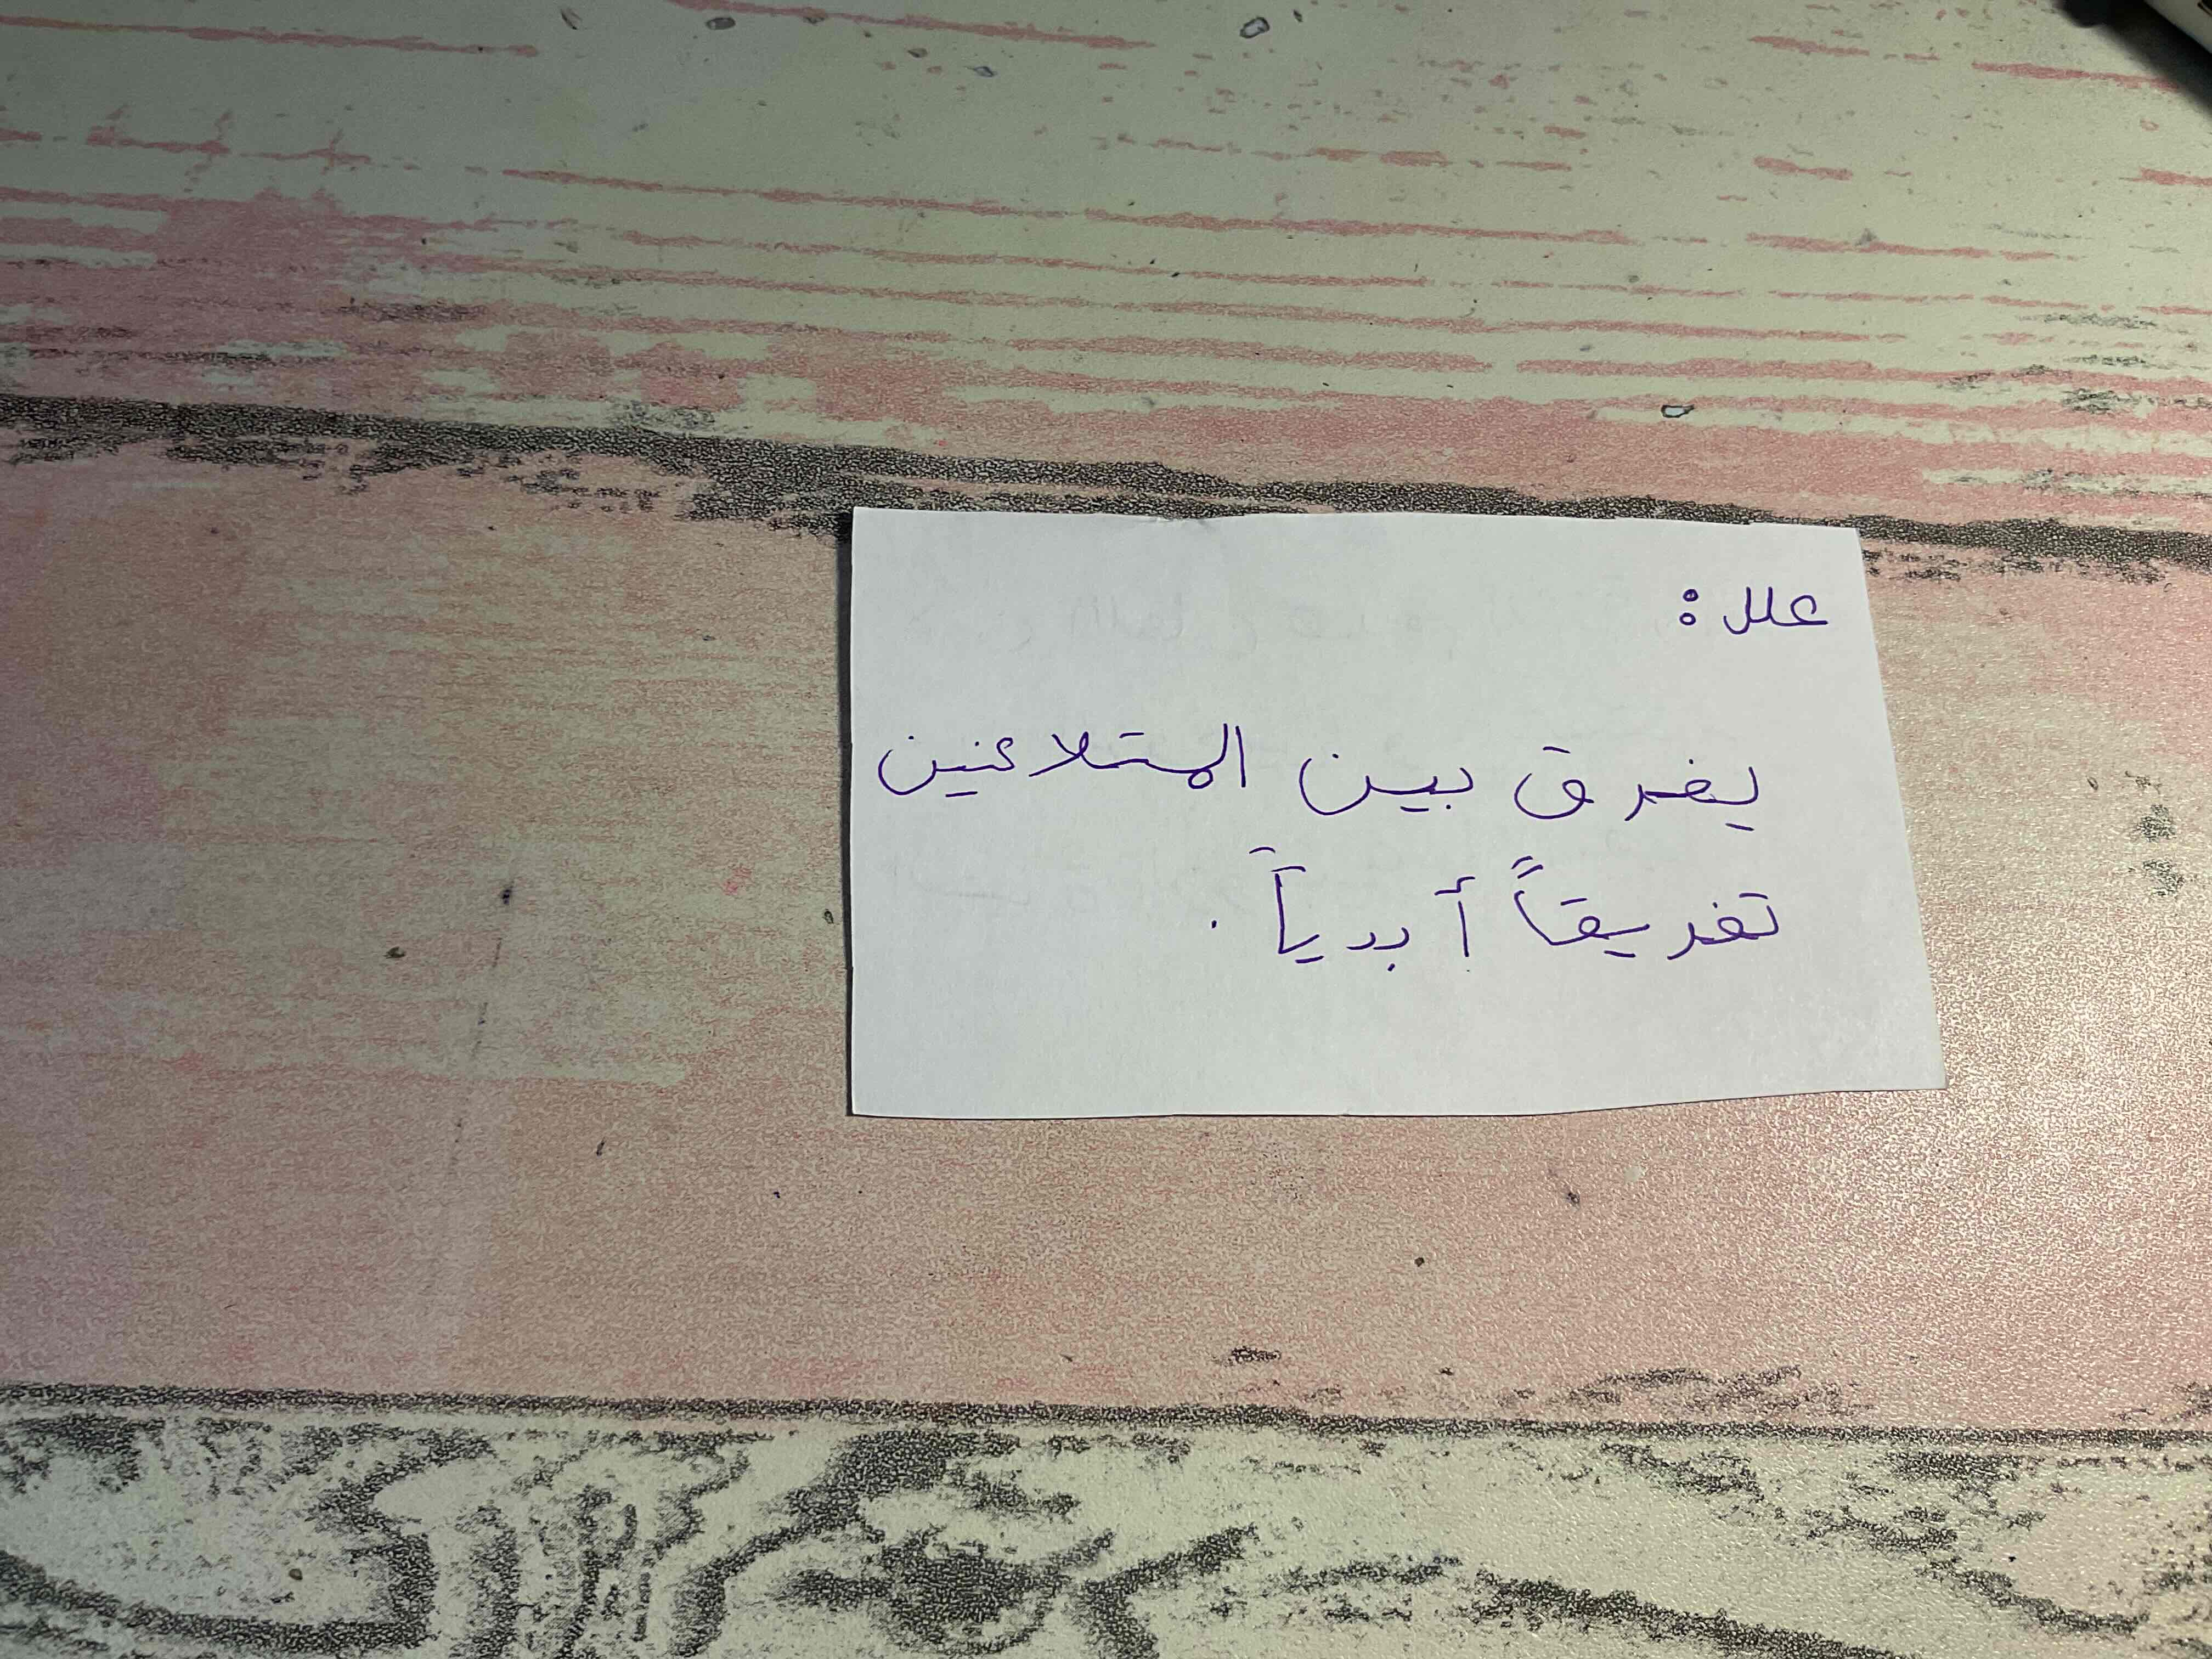 علل :
يفرق بين المتلاعنين
تفريقاً أبدياً .